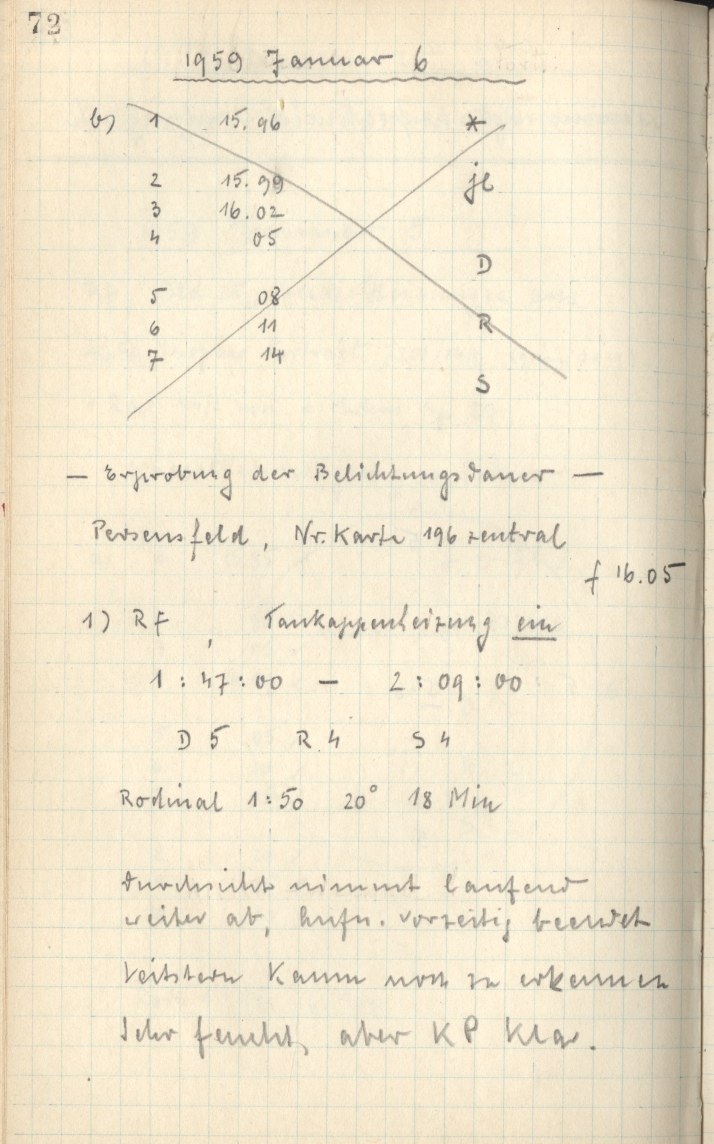 72
1959 Januar 6
b) 1 15.96 *
2 15.99 jl
3 16.02
4 05
D
5 08
6 11 R
7 14
S
— Erprobung der Belichtungsdauer —
Perseusfeld, Nr. Karte 196 zentral
f 16.05
1) RF, Taukappenheizung ein
1 : 47 : 00 — 2 : 09 : 00
D 5 R 4 S 4
Rodinal 1:50 20° 18 Min
Durchsicht nimmt laufend
weiter ab, Aufn. vorzeitig beendet
Leitstern kaum noch zu erkennen
Sehr feucht, aber KP klar.